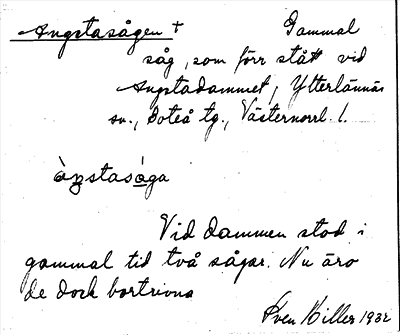 Angstasågen + Gammal
såg, som förr stått vid
Angstadammet, Ytterlännäs
sn., Boteå tg., Västernorrl. l.
àŋstasá̱ga
Vid dammen stod i
gammal tid två sågar. Nu äro
de dock bortrivna
Sven Hiller 1932